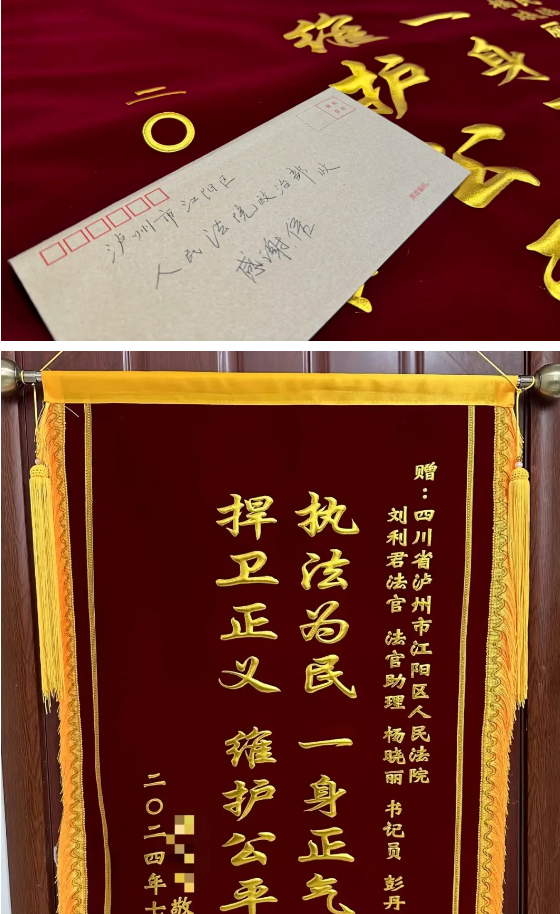 维一
护身
二〇
泸州市江阳区
人民法院政治部收
感谢信
赠：四川省泸州市江阳区人民法院
刘利君法官 法官助理 杨晓丽 书记员 彭丹
执法为民 一身正气
捍卫正义 维护公平
敬
二〇二四年七